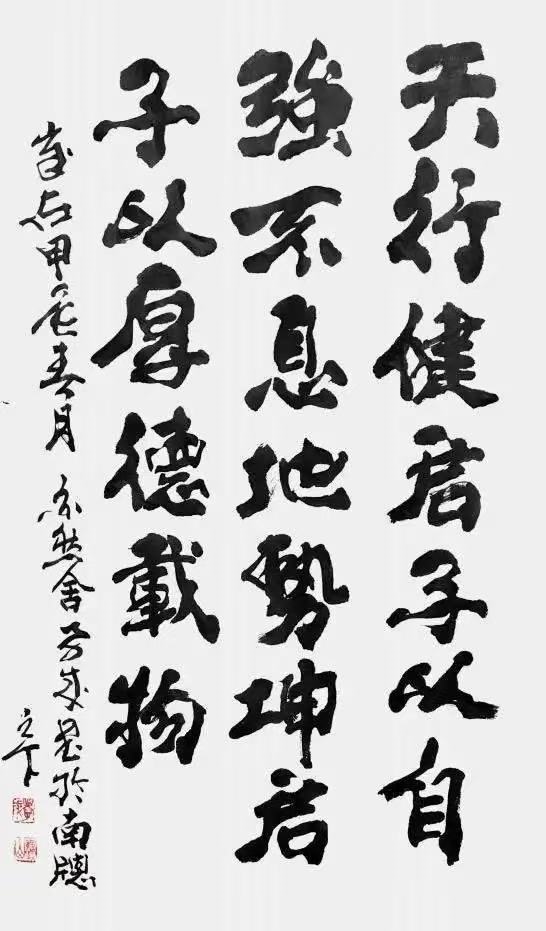 天行健君子以自
強不息地勢坤君
子以厚德載物
歲在甲辰春月 亦然舍
南牕